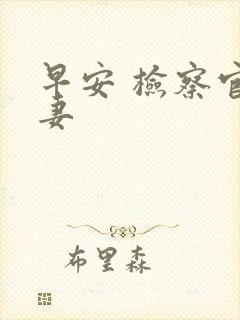 早安 檢察官
妻
布里森